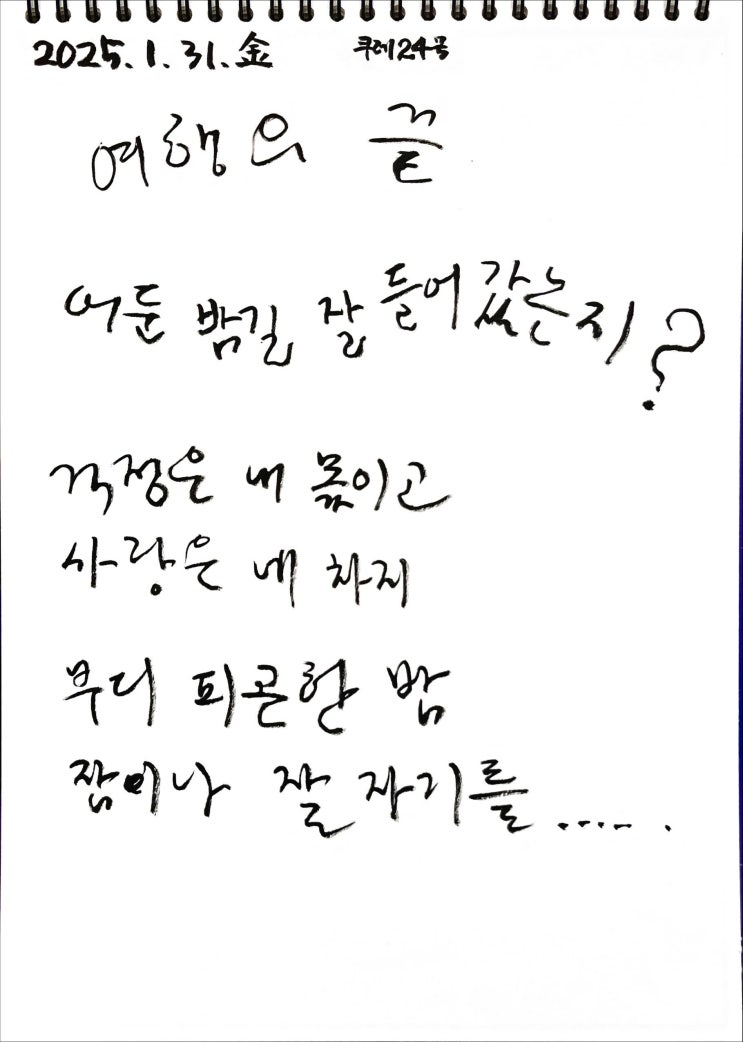 2025.1.31.金 쿠레24号
여행의 끝
어둔 밤길 잘 들어갔는지?
걱정은 내 몫이고
사랑은 네 차지
부디 피곤한 밤
잠이나 잘 자기를 ......